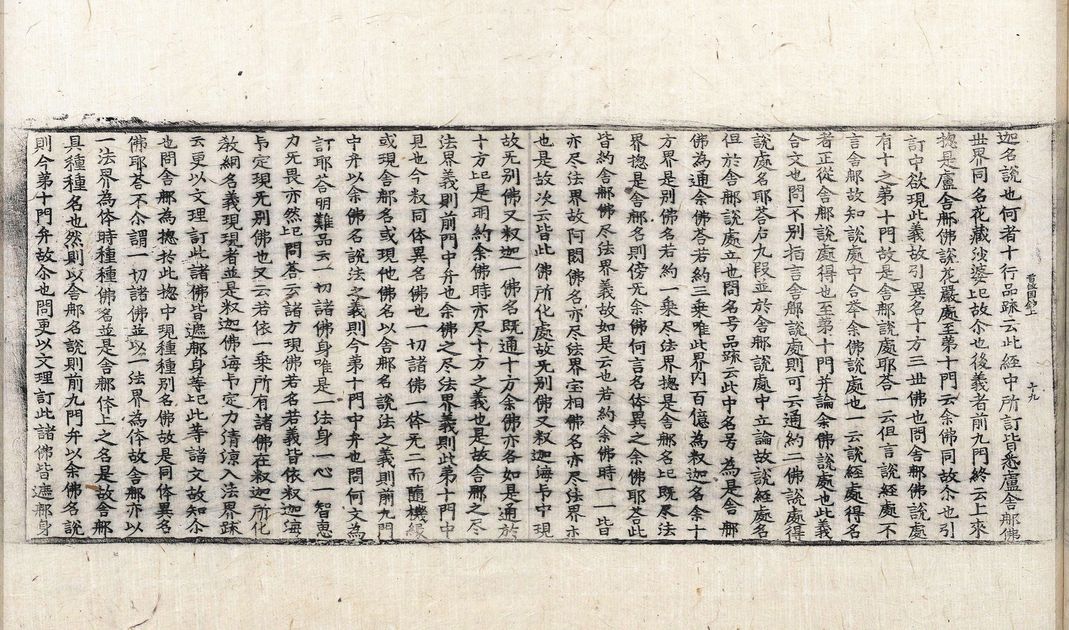 迦名說也何者十行品䟽云此經中所訂皆悉盧舍那佛
世界同名花藏娑婆圯故尒也後義者前九門終云上來
摠是盧舍那佛說花嚴處至第十門云余佛同故尒也引
訂中欲現此義故引異名十方三世佛也問舍那佛說處
有十之第十門故是舍那說處耶答一云但言說經處不
言舍那故知說處中合举余佛說處也一云說經處得名
者正從舍那說處得也至第十門幷論余佛說處也此義
合文也問不別指言舍那說處則可云通約二佛說處得
說處名耶答右九段並於舍那說處中立論故說經處名
但於舍那說處立也問名号品䟽云此中名号為是舍那
佛為通余佛答若約三乗唯此界内百億為釈迦名余十
方界是別佛名若約一乗尽法界摠是舍那名圯既尽法
界摠是舍那名則傍旡余佛何言名体異之余佛耶答此
皆約舍那佛尽法界義故如是云也若約余佛時一一皆
亦尽法界故阿閦佛名亦尽法界宝相佛名亦尽法界亦
也是故次云皆此佛所化處故旡別佛又釈迦海卞中現
故旡別佛又釈迦一佛名既通十方余佛亦各如是通於
十方圯是兩約余佛時亦尽十方之義也是故舍那之尽
法界義則前門中弁也余佛之尽法界義則此第十門中
見也今釈同体異名佛也一切諸佛一体旡二而隨機緣
或現舍那名或現他佛名以舍那名說法之義則前九門
中弁以余佛名說法之義則今第十門中弁也問何文為
訂耶答明難品云一切諸佛身唯是一法身一心一智恵
力旡畏亦然圯問答云諸方現佛若名若義皆依釈迦海
卞定現旡別佛也又云若依一乗所有諸佛在釈迦所化
教網名義現現者並是釈迦佛海卞定力清涼入法界䟽
云更以文理訂此諸佛皆遮那身等圯此等諸文故知尒
也問舍那為摠於此摠中現種種別名佛故是同体異名
佛耶答不尒謂一切諸佛並以一法界為体故舍那亦以
一法界為体時種種佛名並是舍那体上之名是故舍那
具種種名也然則以舍那名說則前九門弁以余佛名說
則今第十門弁故尒也問更以文理訂此諸佛皆遮那身
十九